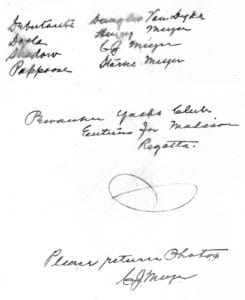 Debutante Douglas Van Dyke
Doyla Henry Meyer
Shadow C J Meyer
Pappoose Starke Meyer
Pewaukee Yacht Club
Entries for Madison
Regatta.
Please return Photos
C J Meyer